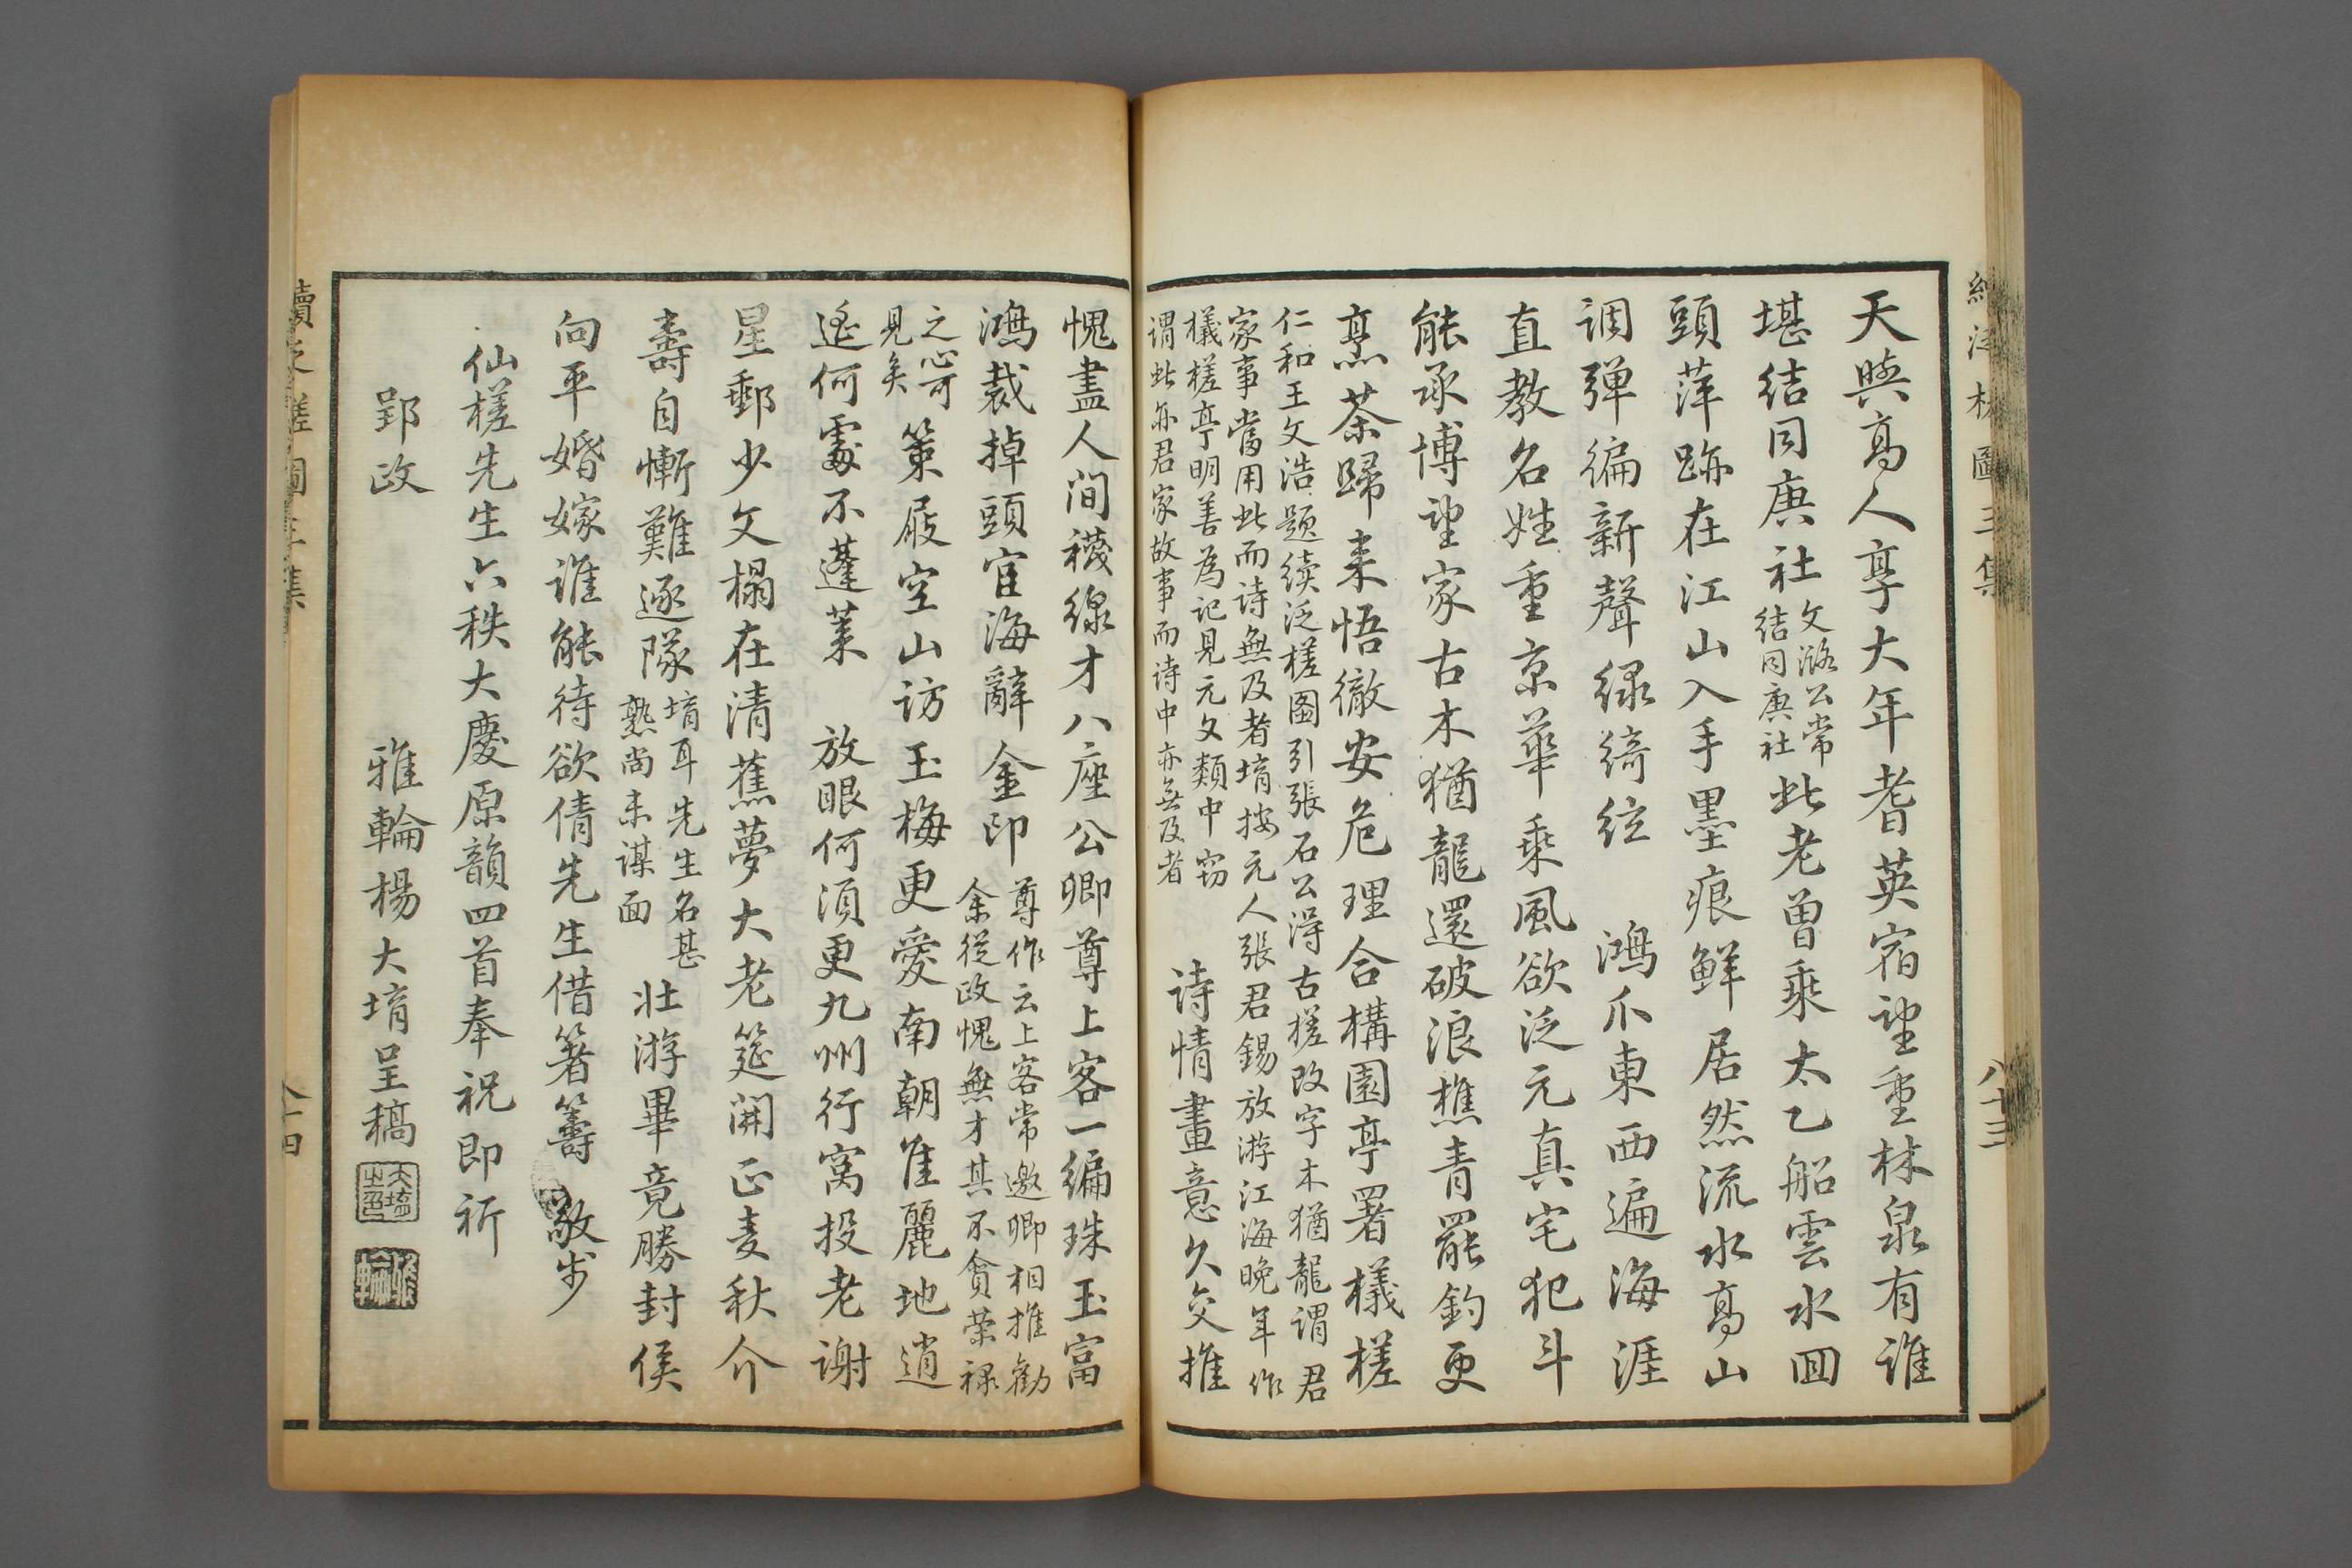 天與高人享大年耆英宿望重林泉有誰
堪結同庚社
文潞公常
結同庚社
此老曾乘太乙船雲水回
頭萍跡在江山入手墨痕鮮居然流水高山
調弹編新聲绿綺絃 鴻爪東西遍海涯
直教名姓重京華乘風欲泛元真宅犯斗
能承博望家古木猶龍還破浪樵青罷釣更
烹茶歸来悟徹安危理合構園亭署檥槎
仁和王文浩題续泛槎图引張石公得古槎改字木猶龍謂君
家事當用此而诗無及者堉按元人張君錫放游江海晚年作
檥槎亭明善為记見元文類中窃
谓此亦君家故事而诗中亦无及者
诗情畫意久交推
愧盡人间襪線才八座公卿尊上客一編珠玉富
鴻裁掉頭宦海辭金印
尊作云上客常邀卿相推勸
余從政愧無才其不貪荣禄
之心可
見矣
策屐空山访玉梅更愛南朝佳麗地逍
遙何處不蓬莱 放眼何須更九州行窩投老谢
星郵少文榻在清蕉夢大老筵開正麦秋介
壽自慚難逐隊
堉耳先生名甚
熟尚未谋面
壮游畢竟勝封侯
向平婚嫁谁能待欲倩先生借箸籌 敬步
仙槎先生六秩大慶原韻四首奉祝即祈
郢政 雅輪楊大堉呈稿
續泛槎圖三集
八十三